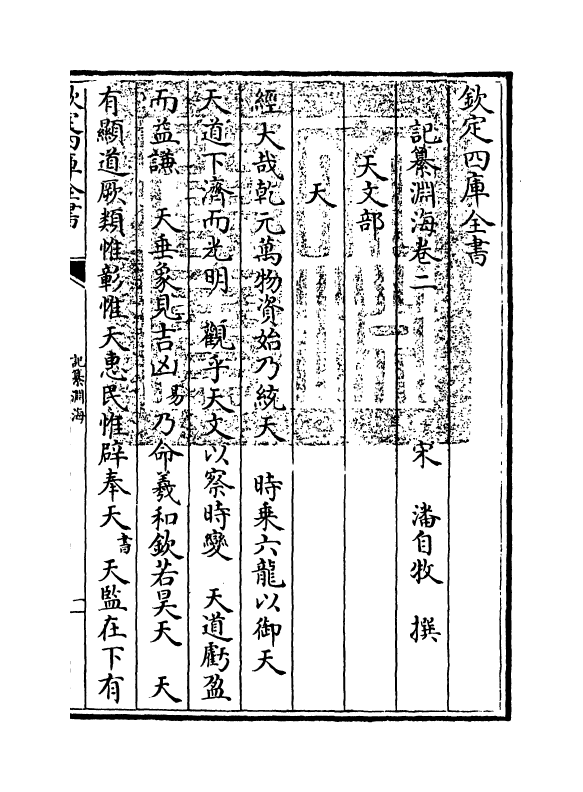 欽定四庫全書
記纂淵海卷二
宋 潘自牧 撰
天文部
天
經大哉乾元萬物資始乃統天 時乗六龍以御天
天道下濟而光明 觀乎天文以察時變 天道虧盈
而益謙 天垂象見吉凶易乃命羲和欽若昊天 天
有顯道厥類惟彰惟天惠民惟辟奉天書 天監在下有
欽定四庫全書
記纂淵海